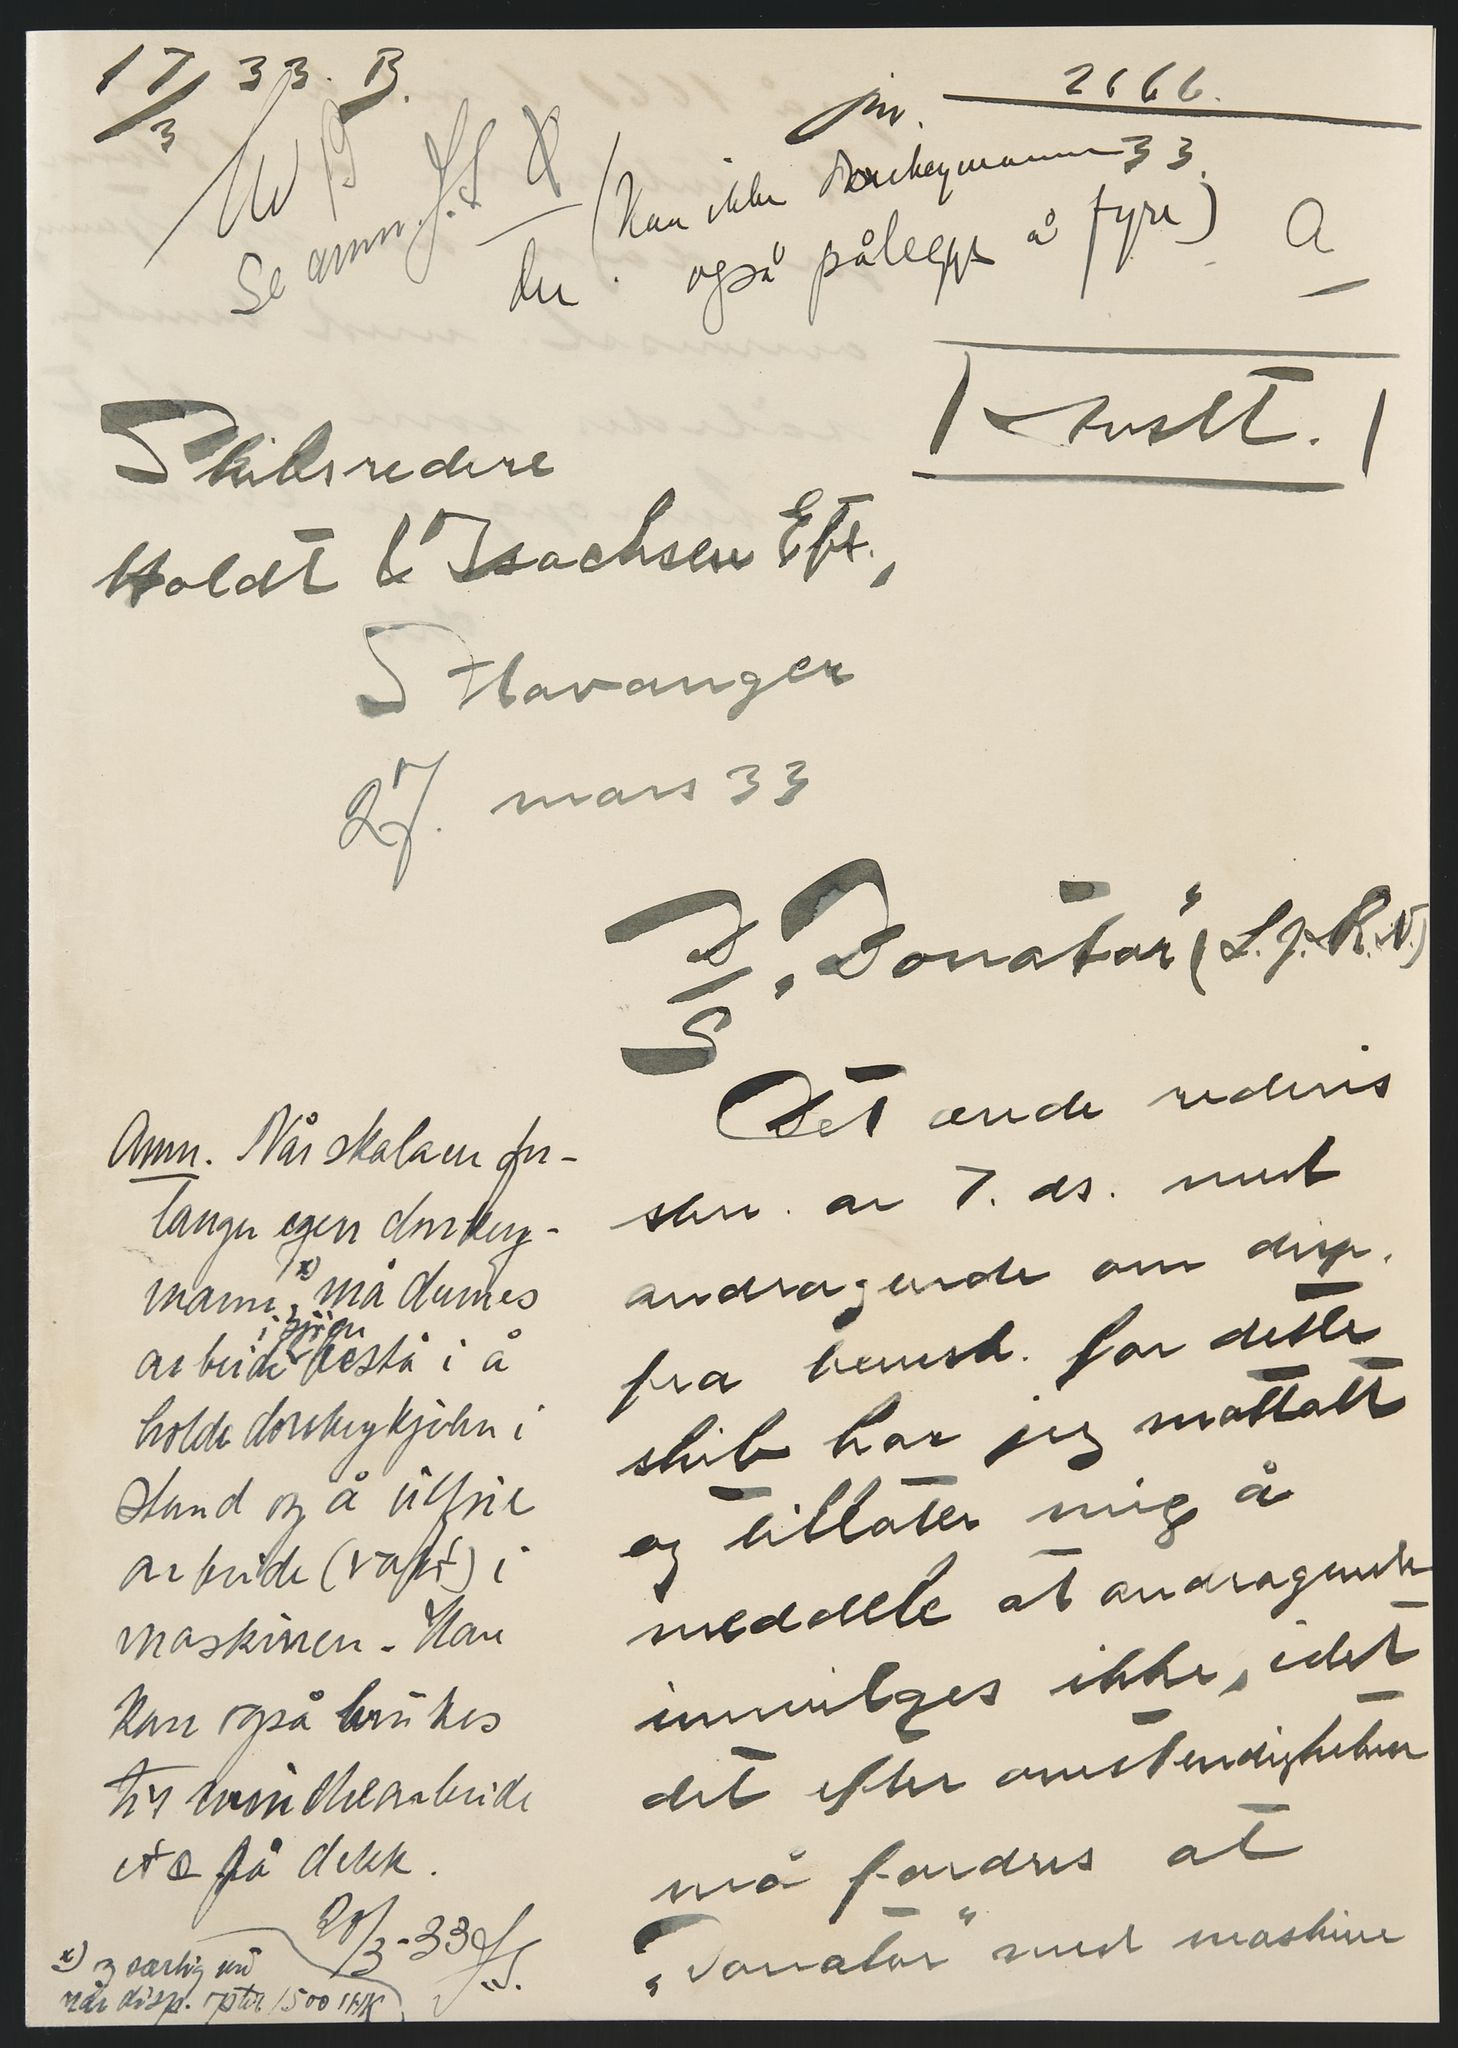 17/3 33. B.
Jnr. 2666
33.
Se anm. J.S.
(Kan ikke Donkeymannen
også pålegges å fyre)
A
Skibsredere
Holdt & Isachsen Eftf.,
Stavanger
27. mars 33
D/S "Donator" (L.J.R.N.)
Det ærede rederis
skr. av 7. ds. med
andragende om disp.
fra bemsk. for dette
skib har jeg mottatt
og tillater mig å
meddele at andragendet
innvilges ikke, idet
det efter omstendigheten
må fordres at
"Donator" med maskine
Anm. Når skalaen for-
langer egen donkey-
mann x) må dennes
arbeide i sjøen bestå i å
holde donkeykjelen i
stand og å utføre
arbeide (vakt) i
maskinen. Han
kan også brukes
til winchearbeide
etc på dekk.
20/3-33 J.S.
x) og særlig nu
når disp. optil 1500 IHK